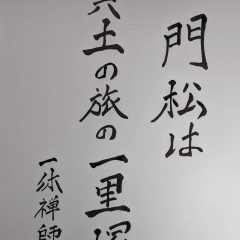 門松は
冥土の旅の一里塚
一休禅師